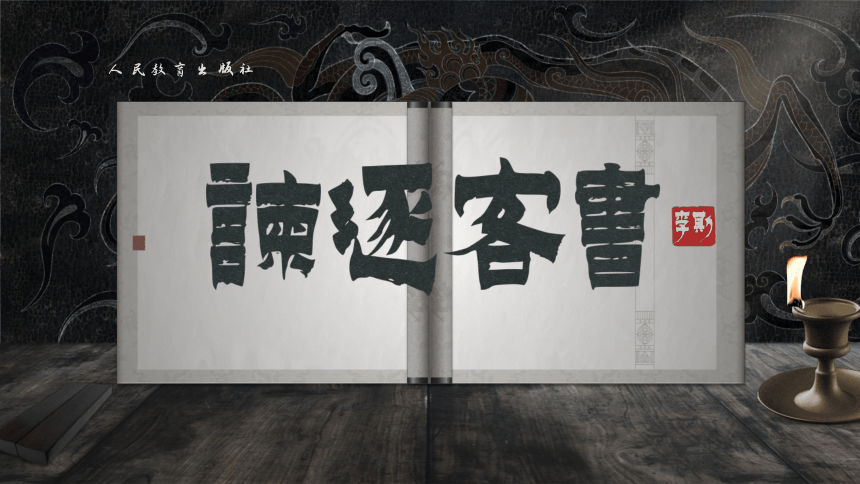 人民教育出版社
諫逐客書
李斯